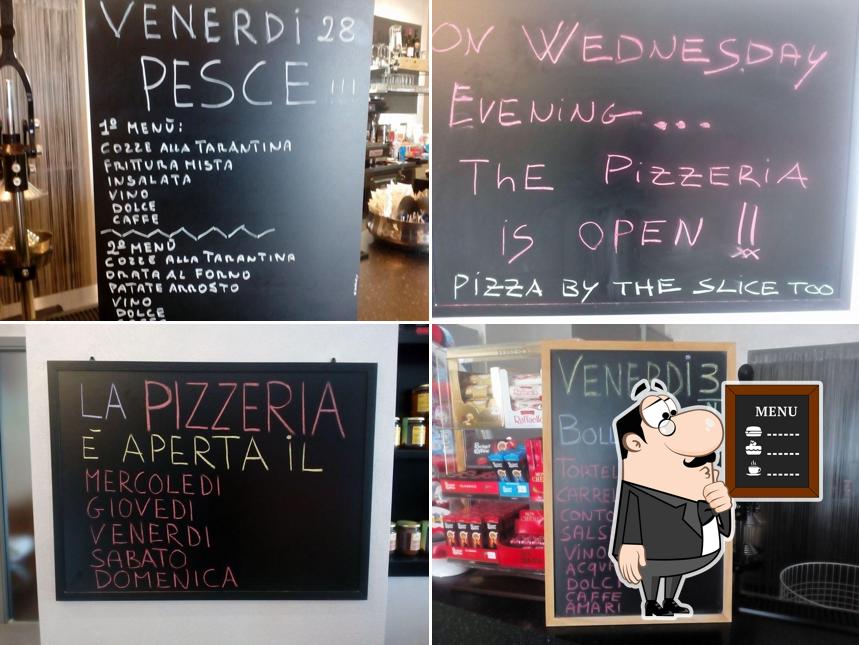 VENERDI 28
PESCE !!!
1º MENÙ:
COZZE ALLA TARANTINA
FRITTURA MISTA
INSALATA
VINO
DOLCE
CAFFE
2º MENÙ
COZZE ALLA TARANTINA
ORATA AL FORNO
PATATE ARROSTO
VINO
DOLCE
ON WEDNESDAY
EVENING...
ThE PiZZERiA
iS OPEN !!
PiZZA BY THE SLICE TOO
LA PIZZERIA
È APERTA iL
MERCOLEDI
GIOVEDI
VENERDI
SABATO
DOMENICA
VENERDI 3
VINO
CAFFE
AMARI
MENU
Raffaello